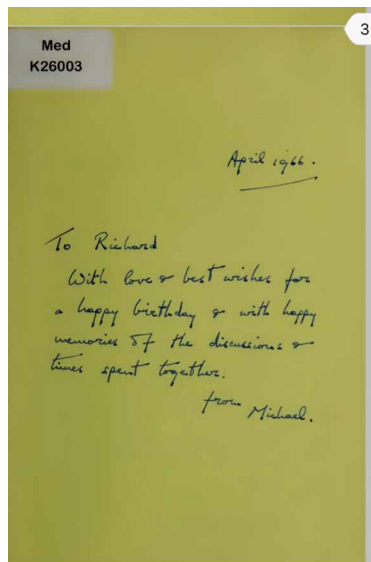 Med
K26003
3
April 1966.
To Richard
With love & best wishes for
a happy birthday & with happy
memories of the discussions &
times spent together.
from Michael.